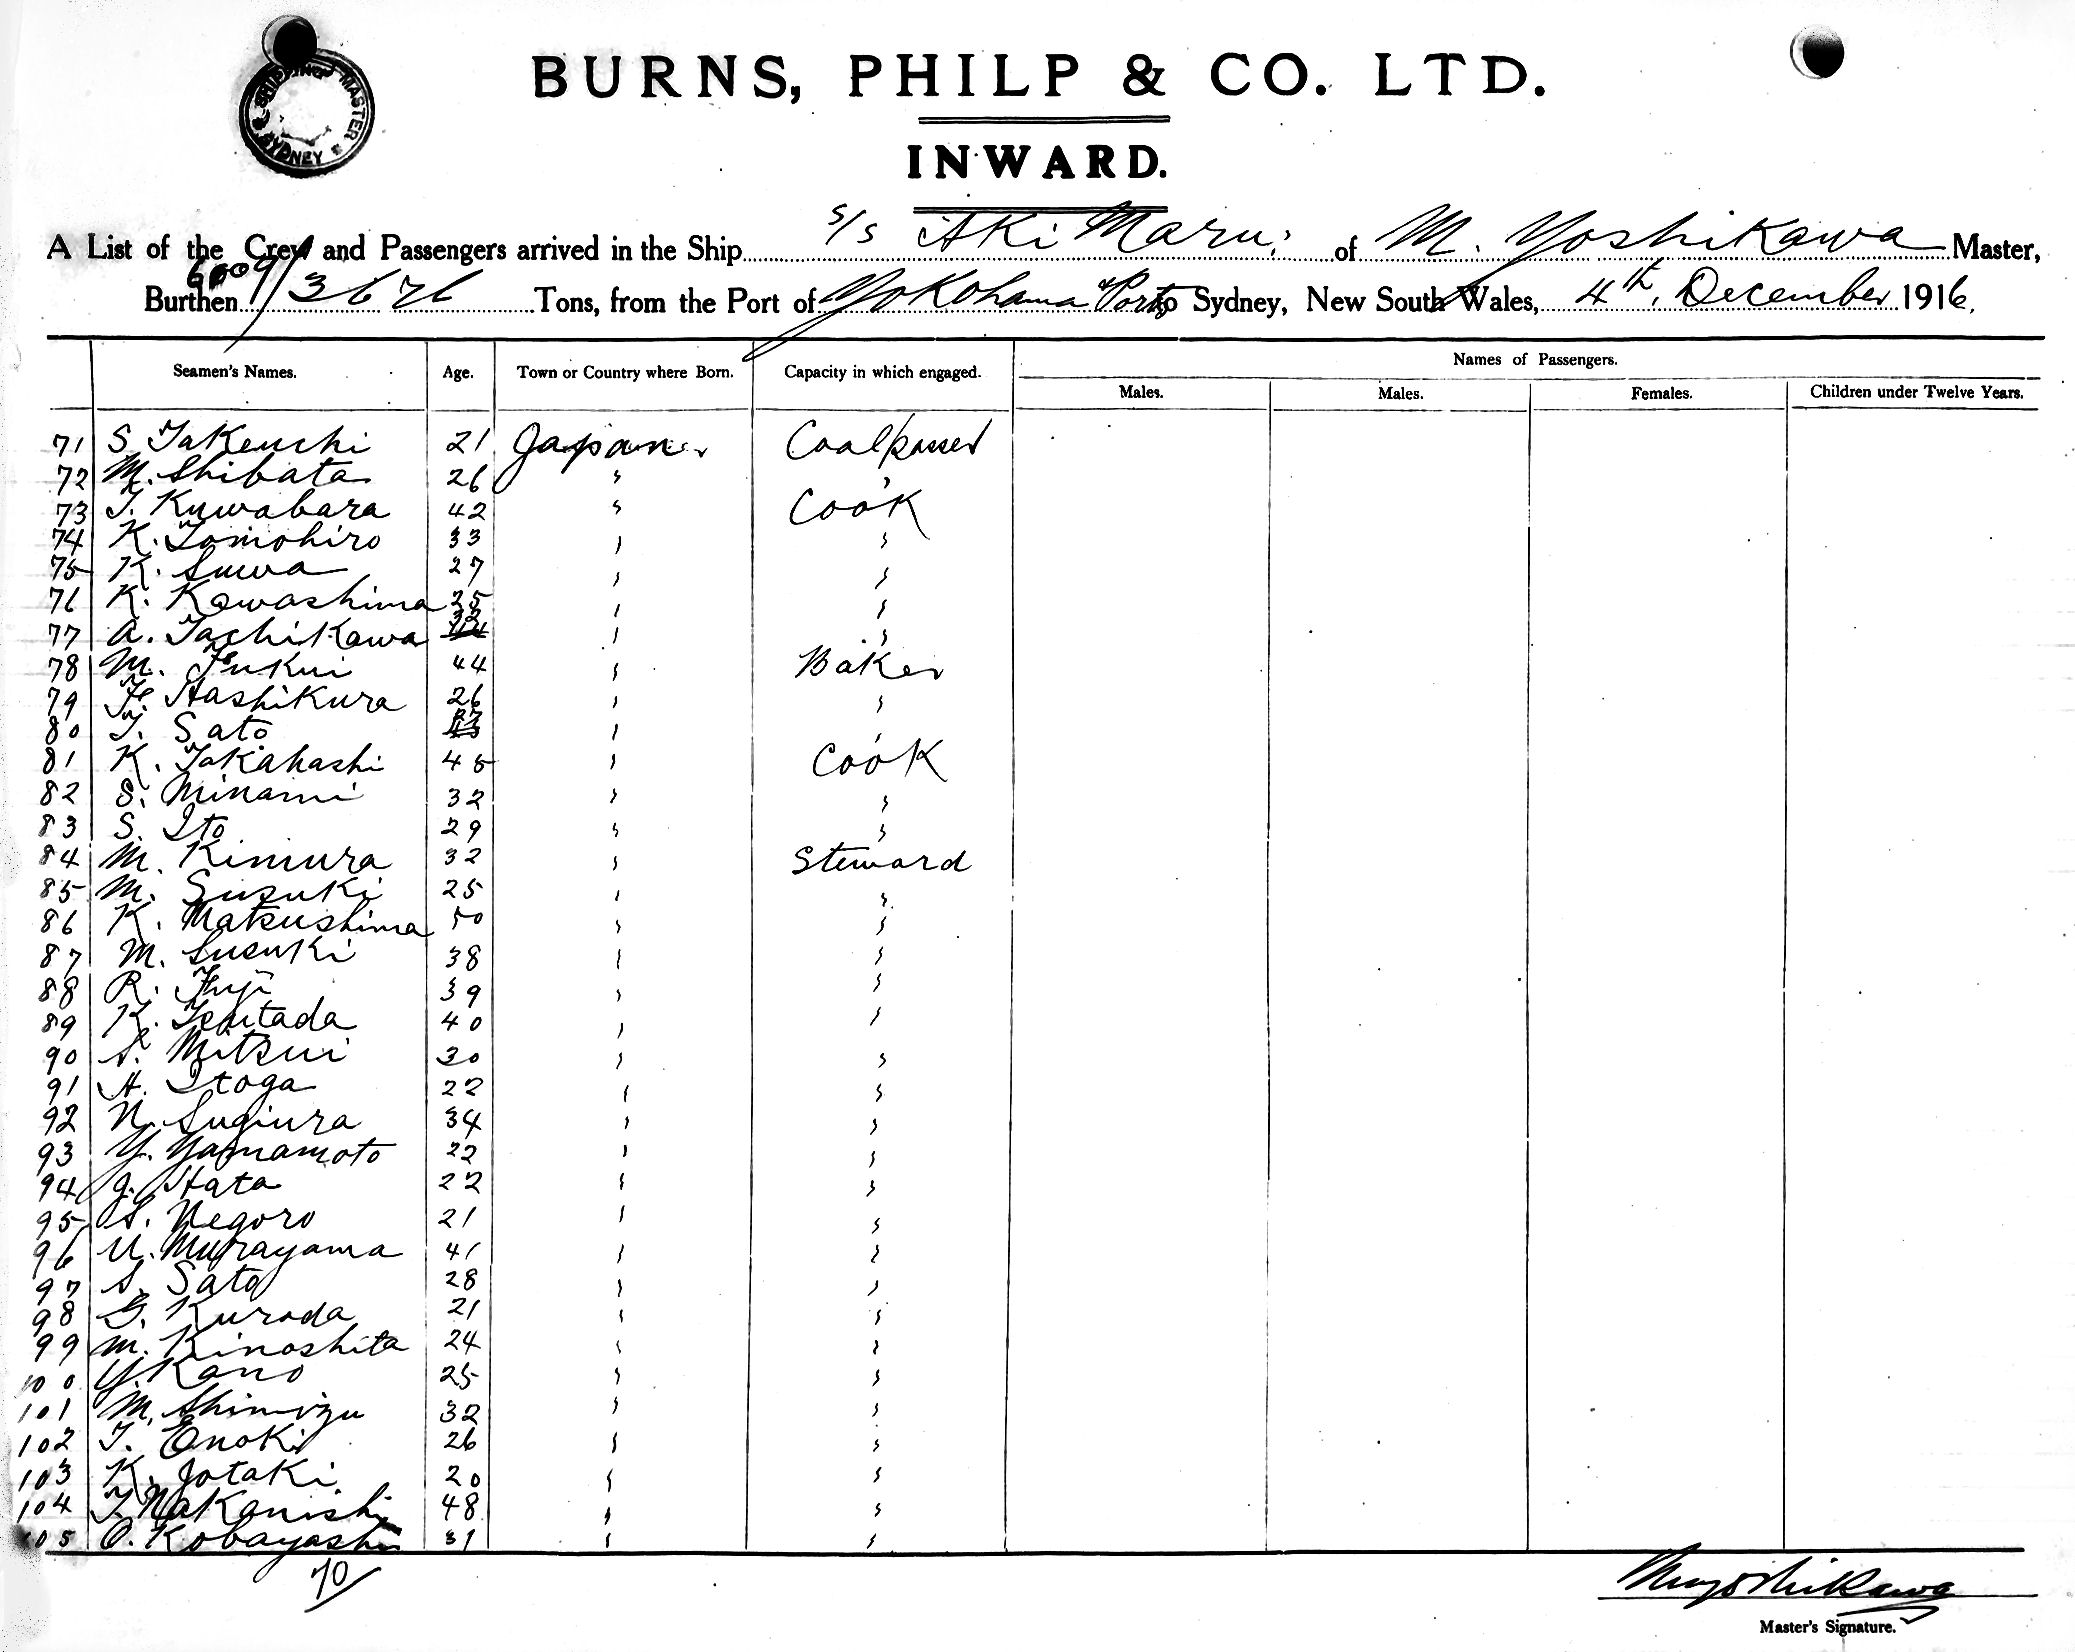 SHIPPING MASTER
SYDNEY
BURNS, PHILP & CO. LTD.
INWARD.
A List of the Crew and Passengers arrived in the Ship S/S Aki Maru of M. Yoshikawa Master,
Burthen 6009/3676 Tons, from the Port of Yokohama Ports to Sydney, New South Wales, 4th. December 1916.
Seamen's Names. Age. Town or Country where Born. Capacity in which engaged. Names of Passengers.
Males. Males. Females. Children under Twelve Years.
71 S. Takeuchi 21 Japan Coalpasser
72 M. Shibata 26 " "
73 T. Kuwabara 42 " Cook
74 K. Tomohiro 33 " "
75 K. Suwa 27 " "
76 K. Kawashima 25 " "
77 A. Tachikawa 32 " "
78 M. Fukui 44 " Baker
79 F. Hashikura 26 " "
80 T. Sato " "
81 K. Takahashi 45 " Cook
82 S. Minami 32 " "
83 S. Ito 29 " "
84 M. Kimura 32 " Steward
85 M. Suzuki 25 " "
86 K. Matsushima 50 " "
87 M. Susuki 38 " "
88 R. Fuji 39 " "
89 K. 40 " "
90 S. Mitsui 30 " "
91 H. Itoga 22 " "
92 N. Sugiura 34 " "
93 Y. Yamamoto 22 " "
94 J. Hata 22 " "
95 S. Negoro 21 " "
96 U. Murayama 41 " "
97 S. Sato 28 " "
98 G. Kuroda 21 " "
99 M. Kinoshita 24 " "
100 Y. Kano 25 " "
101 M. Shimizu 32 " "
102 T. Enoki 26 " "
103 K. Jotaki 20 " "
104 T. Nakanishi 48 " "
105 O. Kobayashi 31 " "
70/
M. Yoshikawa
Master's Signature.